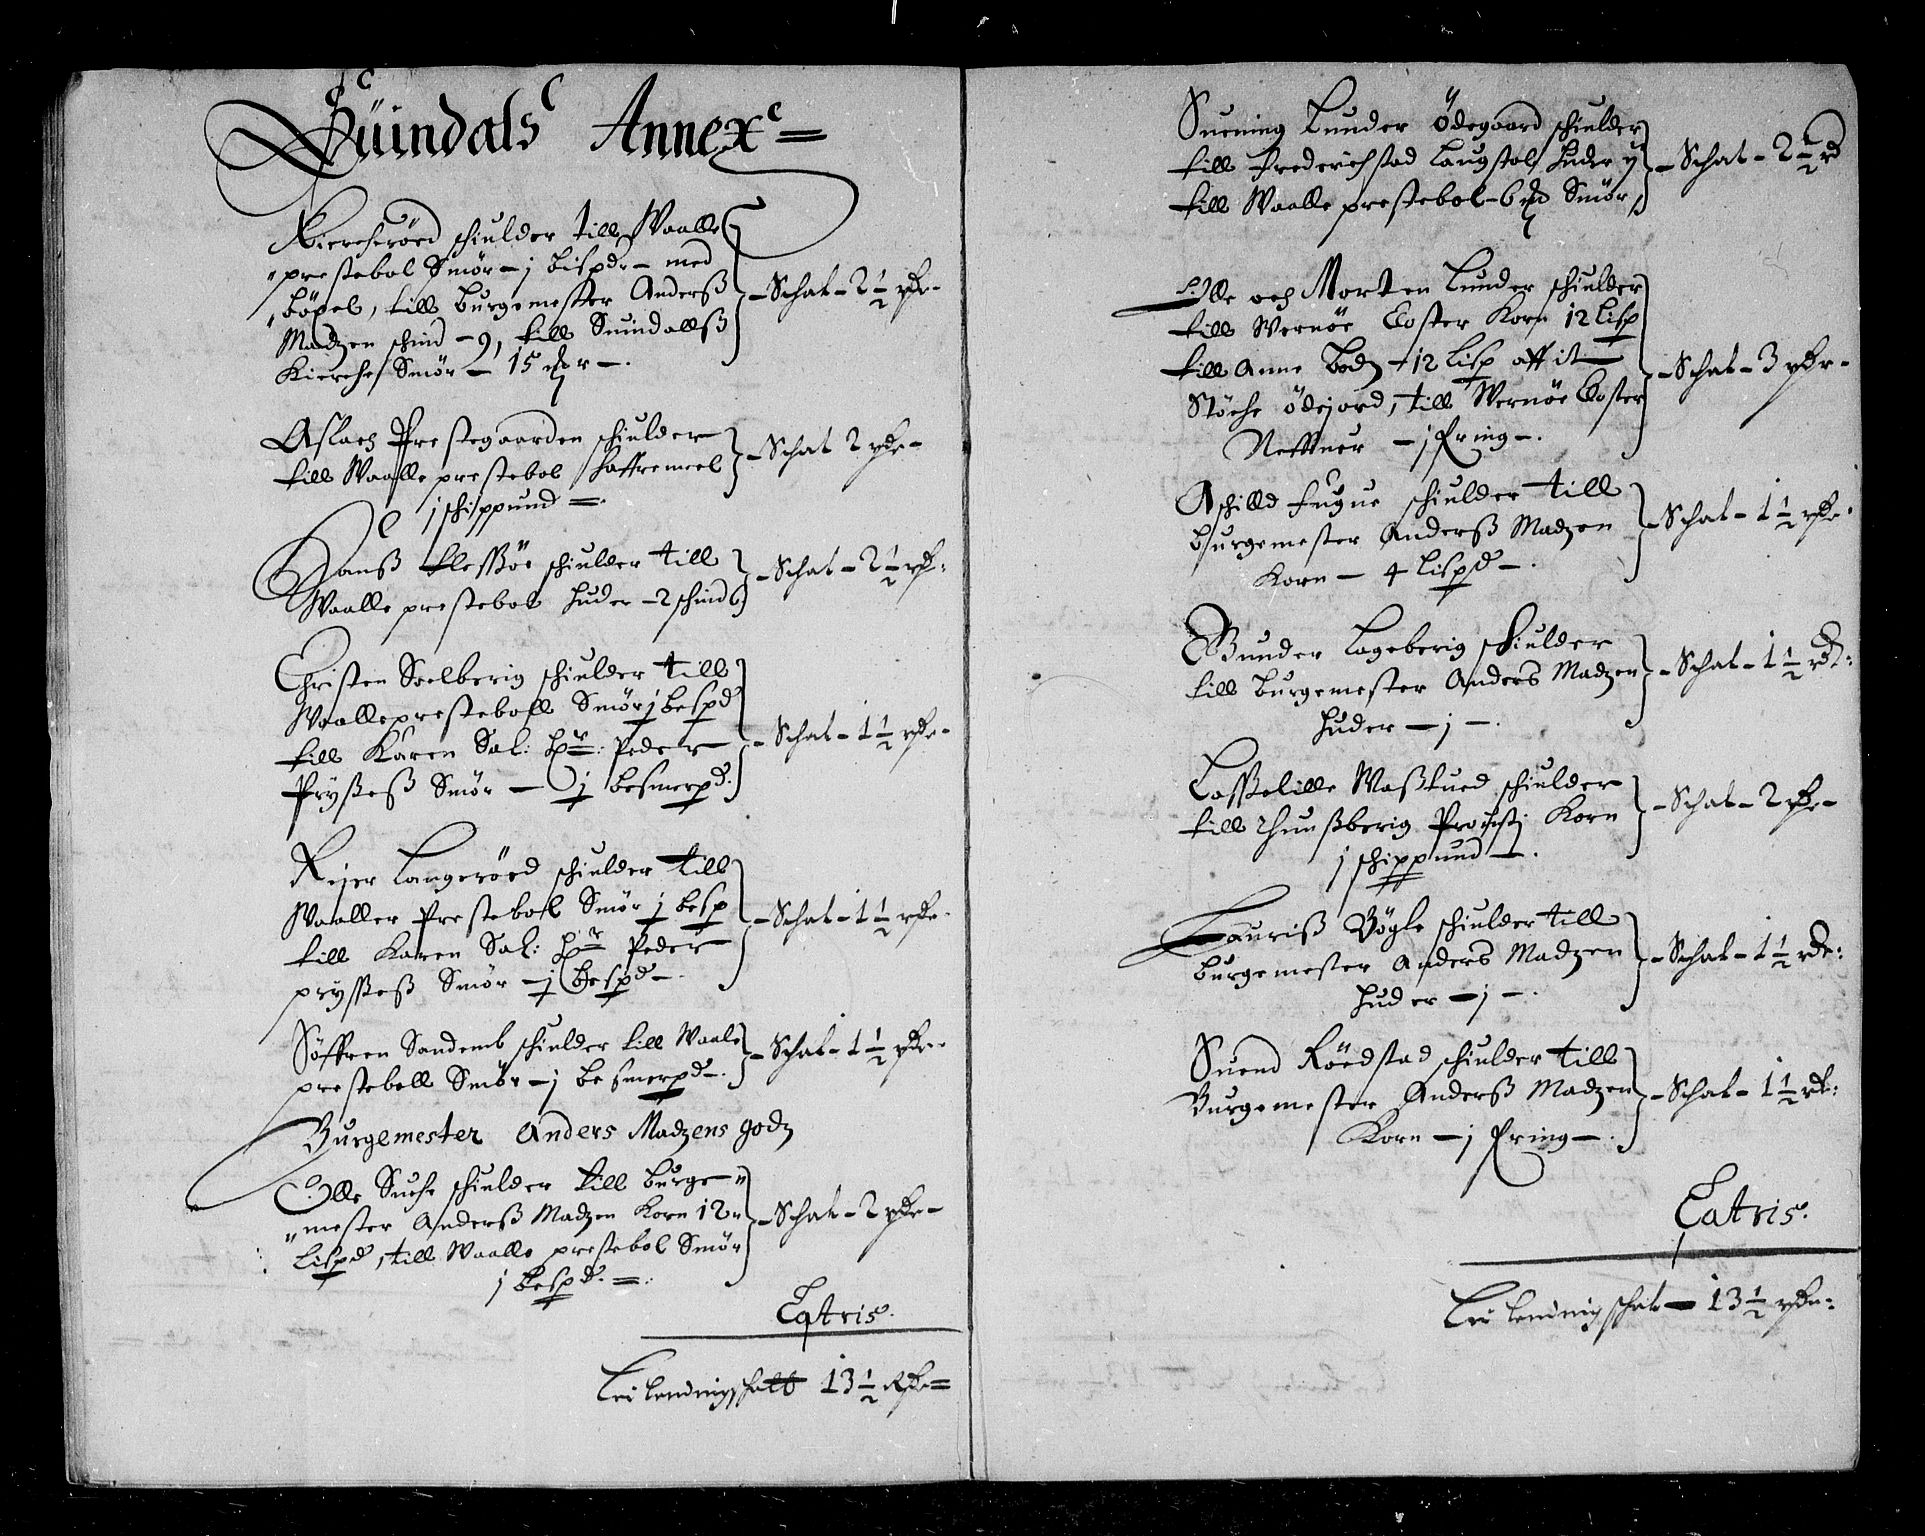 Suindals Annex =
Kiercheröed schiulder till Waalle
prestebol Smör - j Bispdr - med
böxel, till Burgemester Anderß
Madzen schind - 9, till Suindallß
Kierche Smör - 15 mkr -. } - Schat - 2 1/2 rdr -
Aslach Prestegaarden schiulder
till Waalle prestebol haffremeel
j schippund =. } - Schat 2 rdr -
Hanß Klessöe schiulder till
Waalle prestebol huder - 2 schind 6 } - Schat - 2 1/2 rdr -
Christen Soelberig schiulder till
Waalle presteboll Smör j bespd
till Karen Sal: Hr: Peder
Pryßeß Smör - j besmerpd. } - Schat - 1 1/2 rdr -
Rejer Langeröed schiulder till
Waaller Prestebol Smör j besp
till Karen Sal: Hr Peder
prysseß Smör - j bespd -. } - Schat - 1 1/2 rdr -
Söffren Sandemb schiulder till Waale
prestebell Smör - j besmerpd -. } - Schat - 1 1/2 rdr -
Burgemester Anders Madzens godz
Olle Suche schiulder till burge-
mester Anderß Madzen Korn 12
Lispd, till Waalle prestebol Smör
j bespd. =. } - Schat - 2 rdr -
Latris.
Lei lendnig schatt 13 1/2 Rdr =
Suening Lunder ödegaard schiulder
till Frederichstad Laugstol huder ij
till Waalle prestebol - 6 mk Smör } - Schat - 2 1/2 rd
Olle och Morten Lunder schiulder
till Wernöe Closter Korn 12 Lisp
till Anne Bodz - 12 Lisp aff it
Stöche ödejord, till Wernöe Closter
Nettuer - j Fring -. } - Schat - 3 rdr -
Aschilld Fugue schiulder till
burgemester Anderß Madzen
Korn - 4 Lispd -. } - Schat - 1 1/2 rdr -
Gunder Lageberig schiulder
till burgemester Anders Madzen
huder - j -. } - Schat - 1 1/2 rdr:
Lasselille Waßtued schiulder
till Thunßberig Provesti Korn
j schippund -. } - Schat - 2 rdr -
Lauriß Bögle schiulder till
burgemester Anders Madzen
huder - j -. } - Schat - 1 1/2 rdr:
Suend Röedstad schiulder till
Burgemester Anderß Madzen
Korn - j Fring -. } - Schat - 1 1/2 rdr:
Latris.
Lei lendnig schat - 13 1/2 rdr -